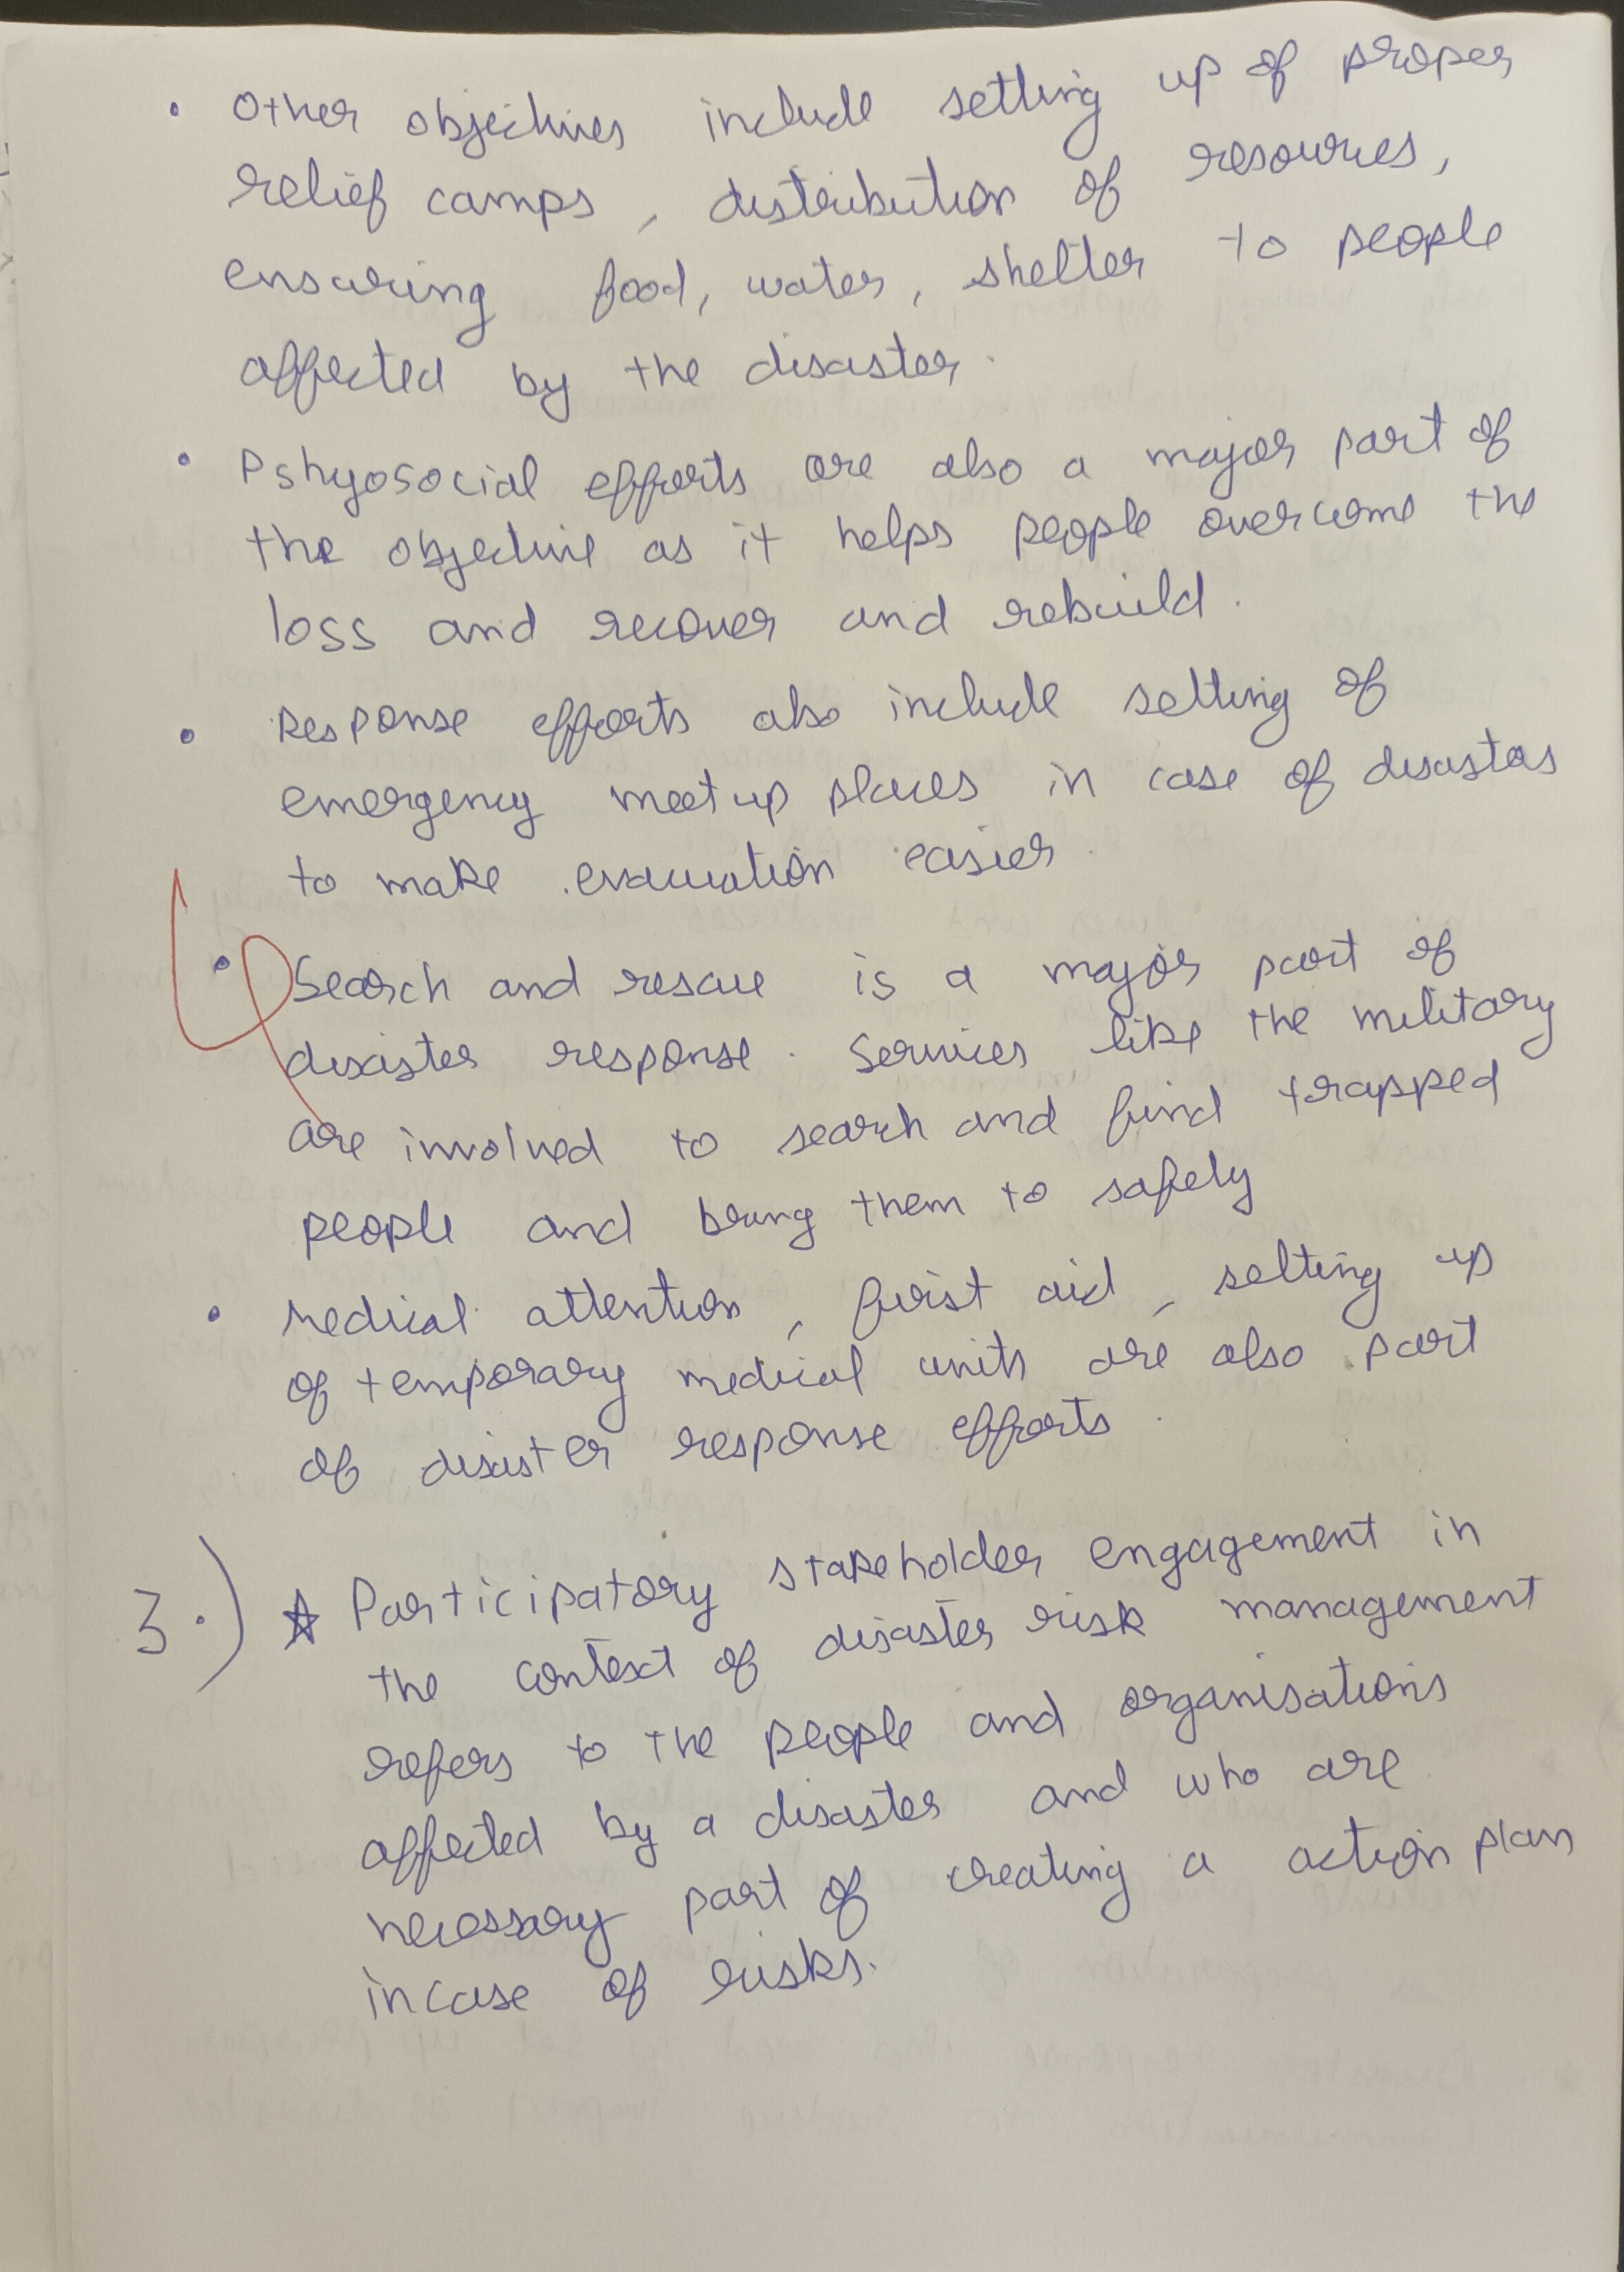 • Other objectives include setting up of proper
relief camps, distribution of resources,
ensuring food, water, shelter to people
affected by the disaster.
• Pshyosocial efforts are also a major part of
the objective as it helps people overcome the
loss and recover and rebuild.
• Response efforts also include setting of
emergency meet up places in case of disastas
to make evacuation easier.
• Search and rescue is a major part of
disaster response. Services like the military
are involved to search and find trapped
people and bring them to safely
• Medical attention, first aid, setting up
of temporary medical units are also part
of disaster response efforts.
3.) ☆ Participatory stakeholder engagement in
the context of disaster risk management
refers to the people and organisations
affected by a disaster and who are
necessary part of creating a action plan
incase of risks.